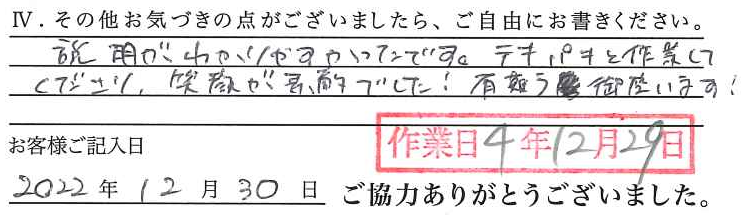 Ⅳ．その他お気づきの点がございましたら、ご自由にお書きください。
説明がわかりやすかったです。テキパキと作業して
くださり、笑顔が素敵でした！有難う御座います！
お客様ご記入日
作業日4年12月29日
2022年12月30日 ご協力ありがとうございました。